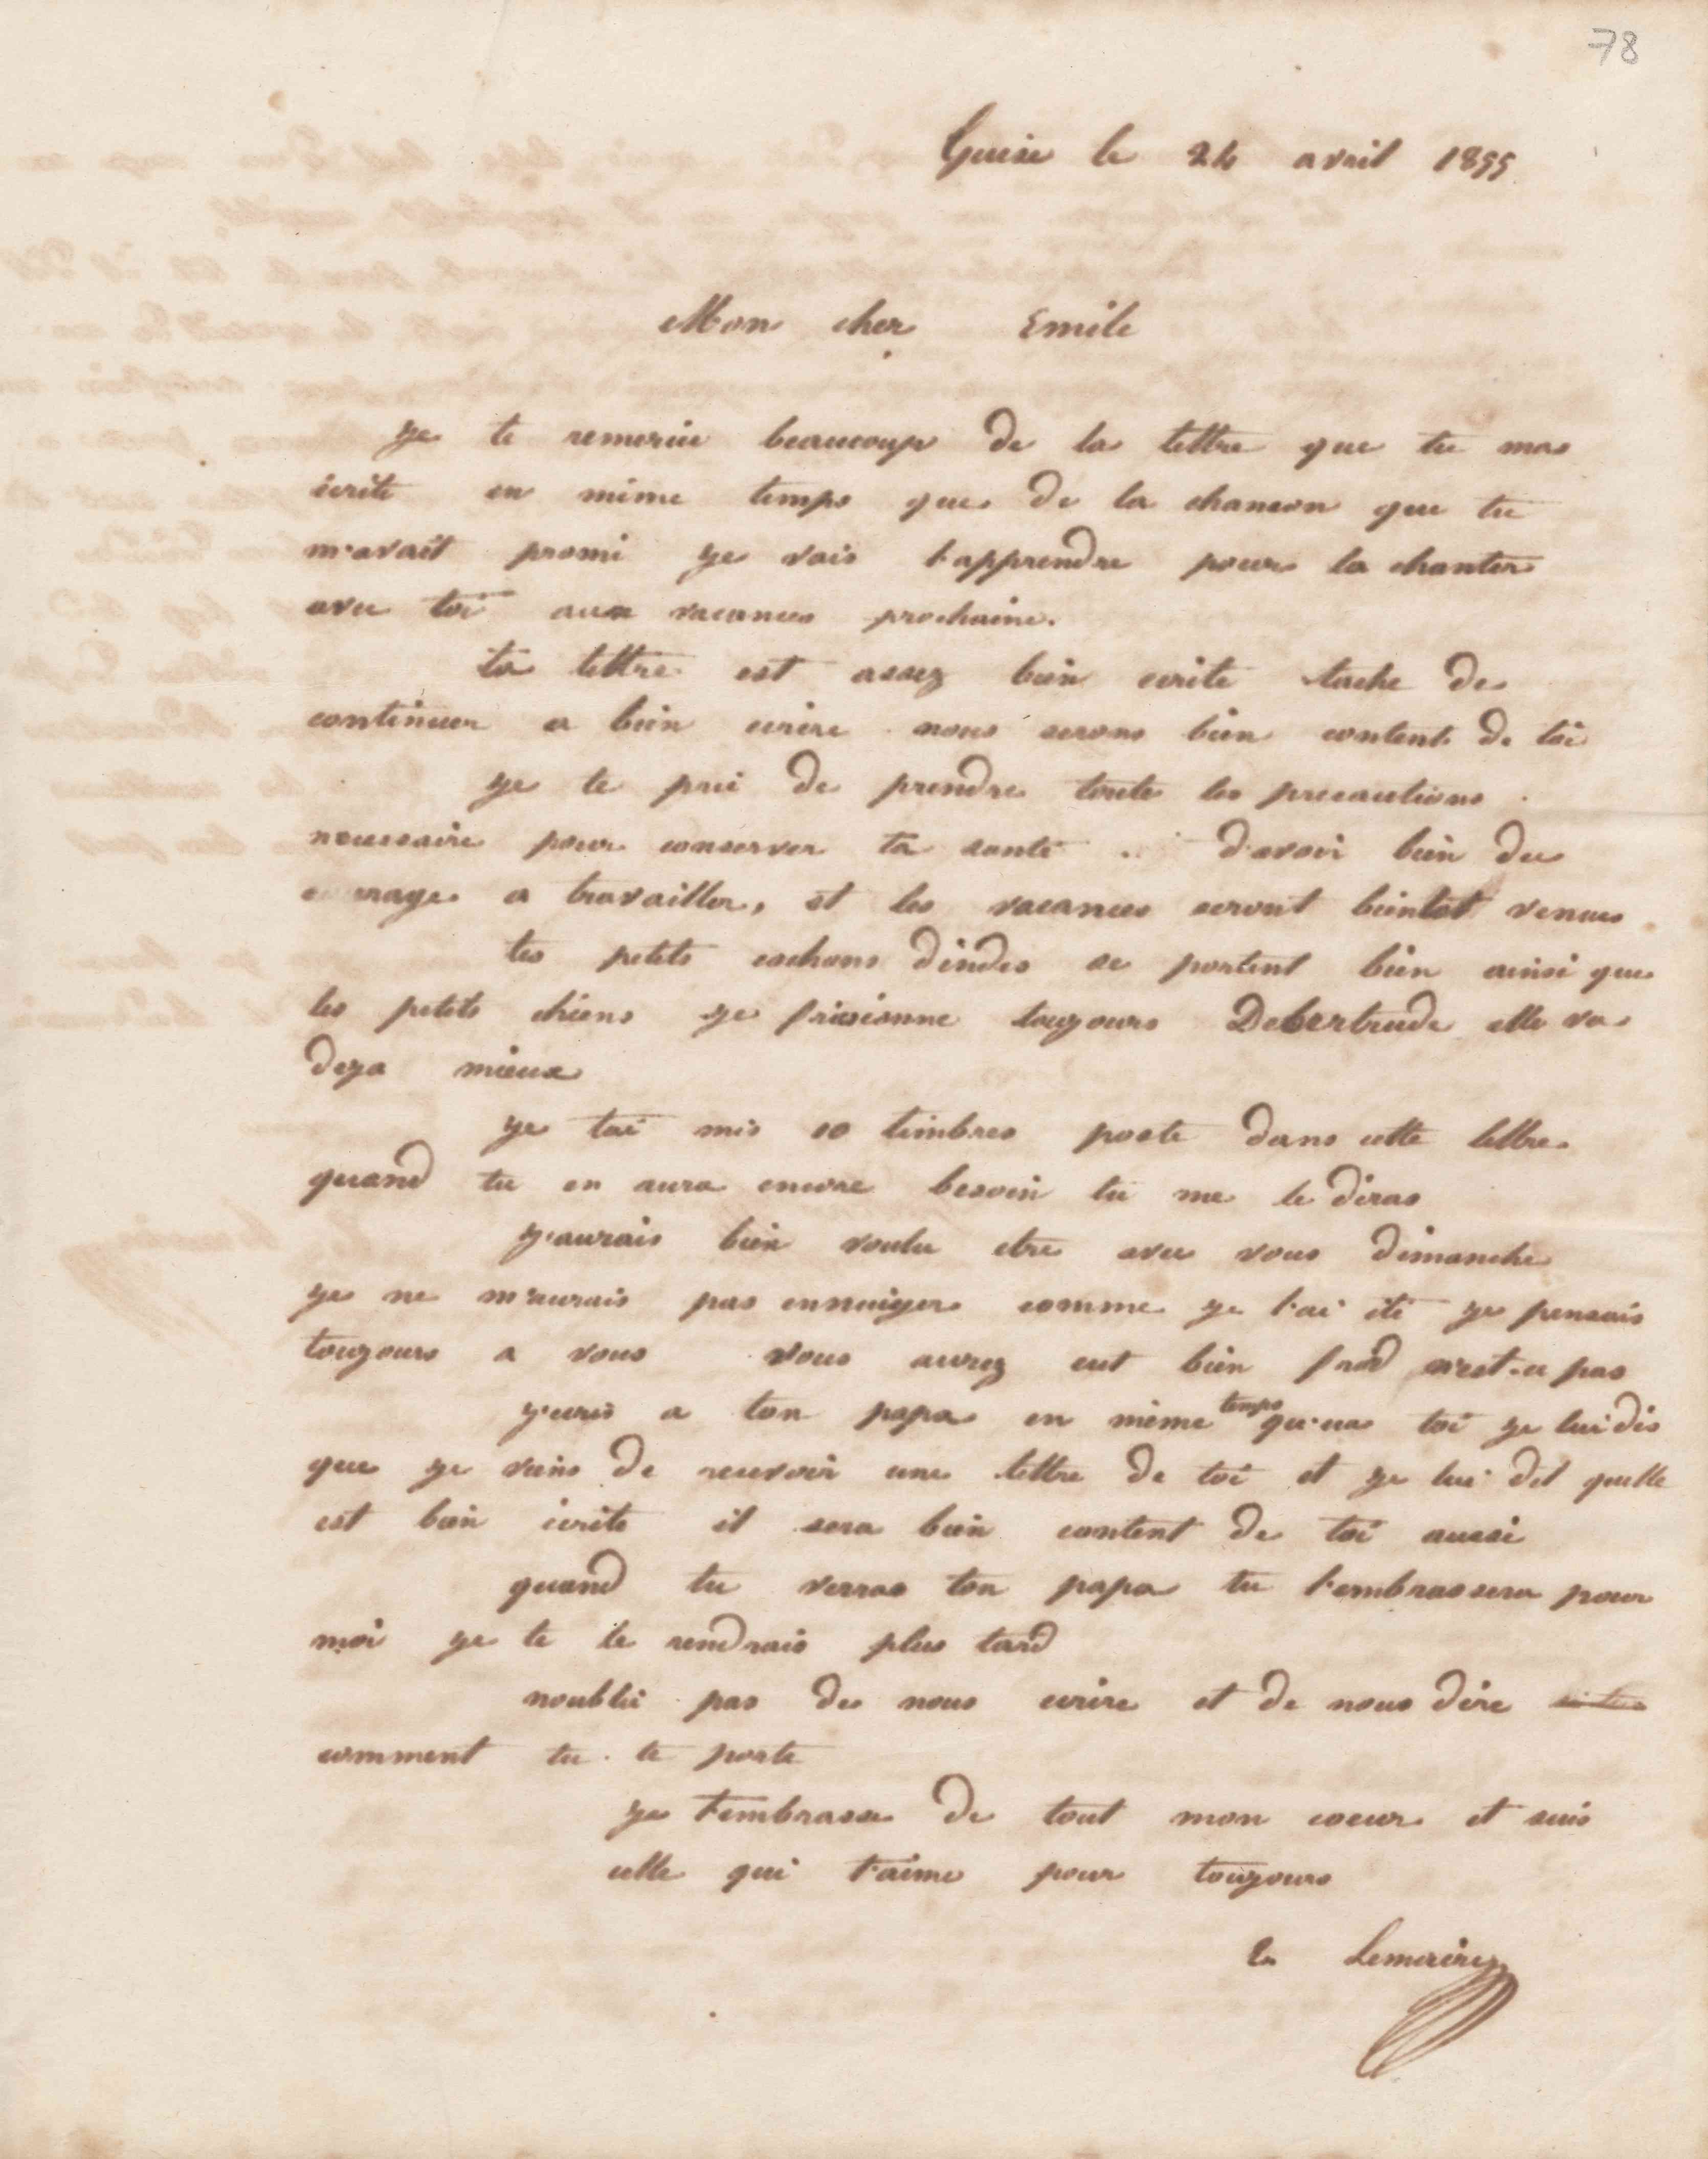 78
Guise le 24 avril 1855
Mon cher Emile
je te remercie beaucoup de la lettre que tu mas
écrite en même temps que de la chanson que tu
m'avait promi je vais l'apprendre pour la chanter
avec toi aux vacances prochaine.
ta lettre est assez bien ecrite tache de
continuer a bien ecrire nous serons bien content de toi
je te prie de prendre toute les precautions
necessaire pour conserver ta santé d'avoir bien du
courage a travailler, et les vacances seront bientot venues
tes petits cochons dindes se portent bien ainsi que
les petits chiens je frisionne toujours Debertrude elle va
deja mieux
je tai mis 10 timbres poste dans cette lettre
quand tu en aura encore besoin tu me le diras
j'aurais bien voulu etre avec vous dimanche
je ne m'aurais pas ennuiyer comme je l'ai été je pensais
toujours a vous vous aurez eut bien froid n'est-ce pas
j'ecris a ton papa en même temps qu'ua toi je lui dis
que je viens de recevoir une lettre de toi et je lui dit quelle
est bien écrite il sera bien content de toi aussi
quand tu verras ton papa tu l'embrassera pour
moi je te le rendrais plus tard
noubli pas de nous ecrire et de nous dire si tu
comment tu te porte
je t'embrasse de tout mon coeur et suis
celle qui t'aime pour toujours
Lemaire